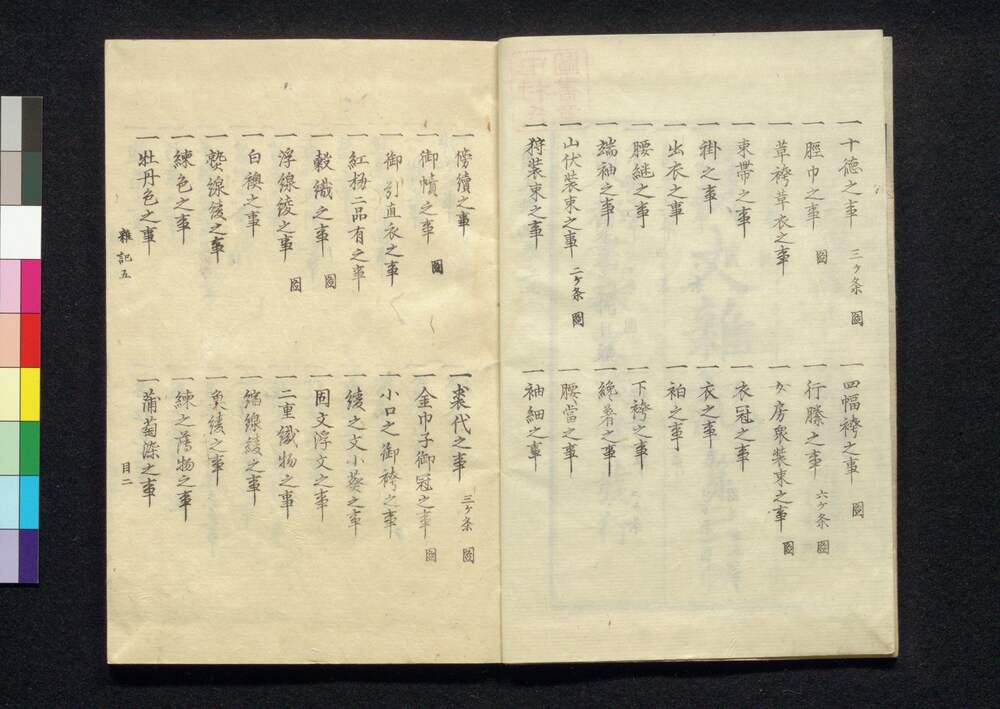 一十德之事 三ケ条 圖
一四幅袴之事 圖
一脛巾之事 圖
一行縢之事 六ケ条 圖
一草袴草衣之事
一女房衆装束之事 圖
一束帶之事
一衣冠之事
一褂之事
一衣之事
一出衣之事
一袙之事
一腰継之事
一下袴之事
一端袖之事
一 之事
一山伏装束之事 二ケ条 圖
一腰當之事
一狩装束之事
一袖細之事
一傍續之事
一裘代之事 三ケ条 圖
一御幘之事 圖
一金巾子御冠之事 圖
一御引直衣之事
一小口之御袴之事
一紅梅二品有之事
一綾之文小葵之事
一縠織之事 圖
一固文浮文之事
一浮線綾之事 圖
一二重織物之事
一白襖之事
一縮線綾之事
一蟄線綾之事
一魚綾之事
一練色之事
一練之薄物之事
一牡丹色之事
一蒲萄染之事
雜記五
目二